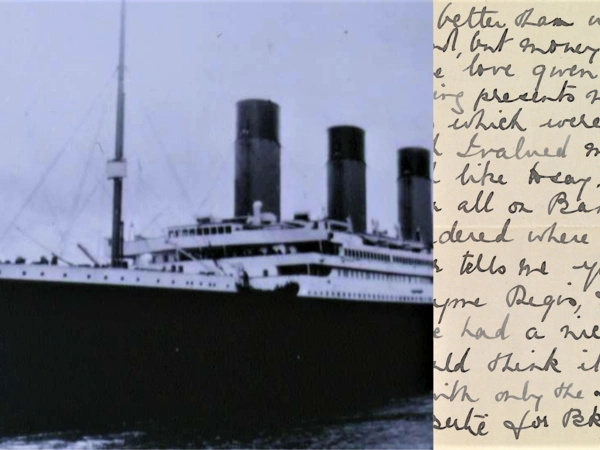 better than
but money
love given
ing presents
which were
I valued
like to say,
all on
dered where
tells me
yme Regis,
had a
uld think it
with only the
for